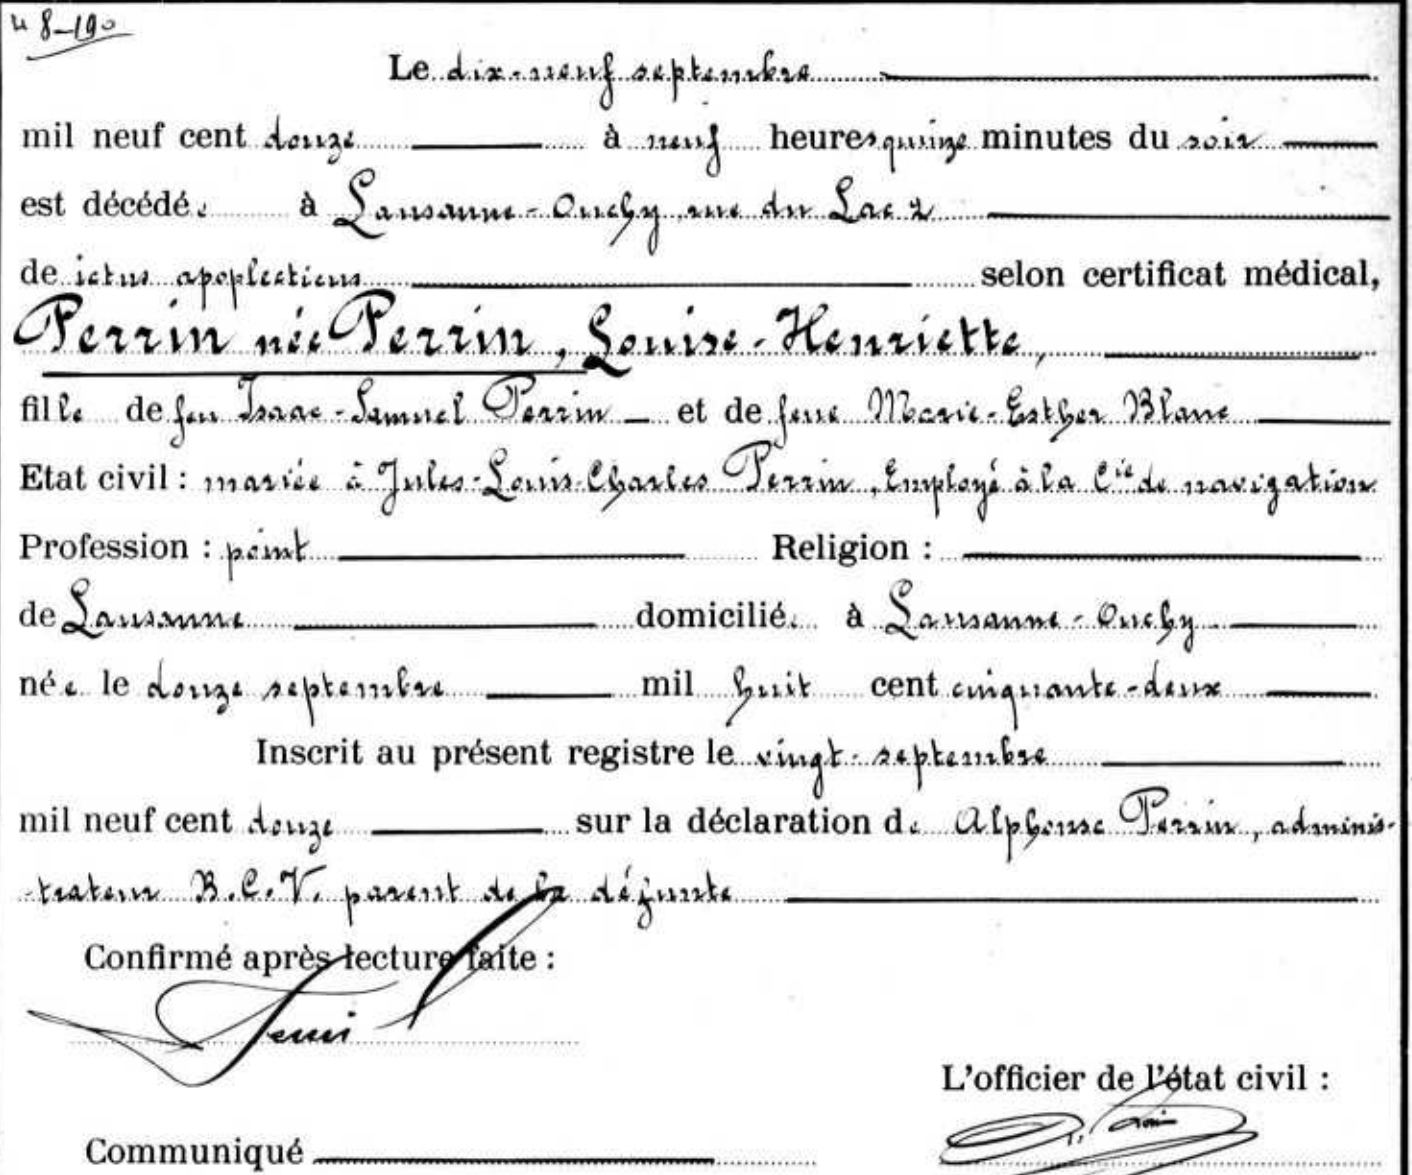 48-190
Le dix-neuf septembre
mil neuf cent douze à neuf heures quinze minutes du soir
est décédée à Lausanne-Ouchy, rue du Lac 2
de ictus apoplecticus selon certificat médical,
Perrin née Perrin, Louise-Henriette,
fille de feu Isaac-Samuel Perrin et de feue Marie-Esther Blanc
Etat civil : mariée à Jules-Louis-Charles Perrin, Employé à la Cie de navigation
Profession : point Religion :
de Lausanne domiciliée à Lausanne-Ouchy
née le douze septembre mil huit cent cinquante-deux
Inscrit au présent registre le vingt-septembre
mil neuf cent douze sur la déclaration de Alphonse Perrin, adminis-
-trateur B.C.V. parent de la défunte
Confirmé après lecture faite :
L'officier de l'état civil :
Communiqué